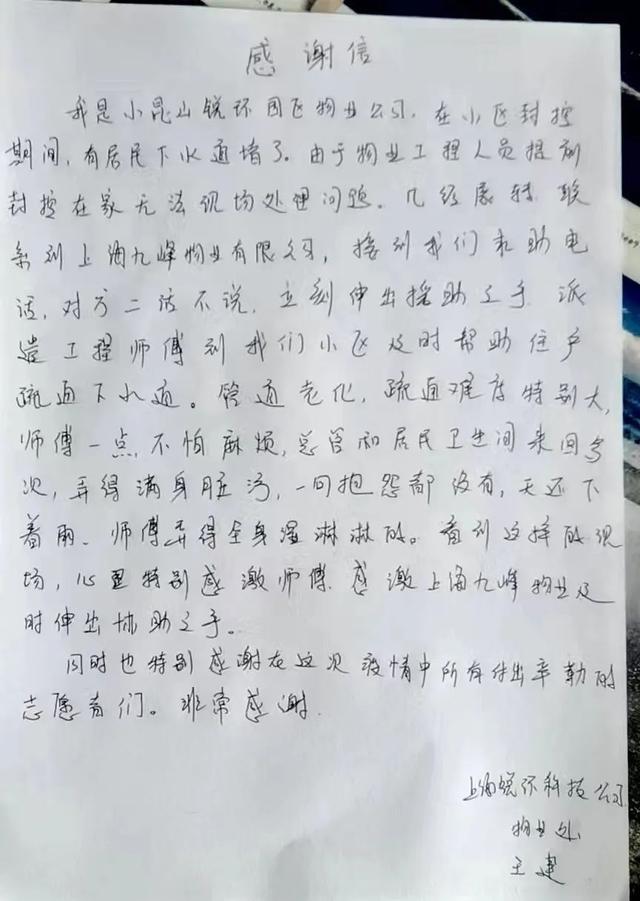 感谢信
我是小昆山锐环园区物业公司，在小区封控
期间，有居民下水道堵了。由于物业工程人员提前
封控在家无法现场处理问题。几经展转，联
系到上海九峰物业有限公司，接到我们求助电
话，对方二话不说，立刻伸出援助之手，派
遣工程师傅到我们小区及时帮助住户
疏通下水道。管道老化，疏通难度特别大，
师傅一点不怕麻烦，总管和居民卫生间来回多
次，弄得满身脏污，一句抱怨都没有，天还下
着雨、师傅弄得全身湿淋淋的。看到这样的现
场，心里特别感激师傅，感激上海九峰物业及
时伸出协助之手。
同时也特别感谢在这次疫情中所有付出辛勤的
志愿者们。非常感谢
上海锐环科技公司
物业处
王建